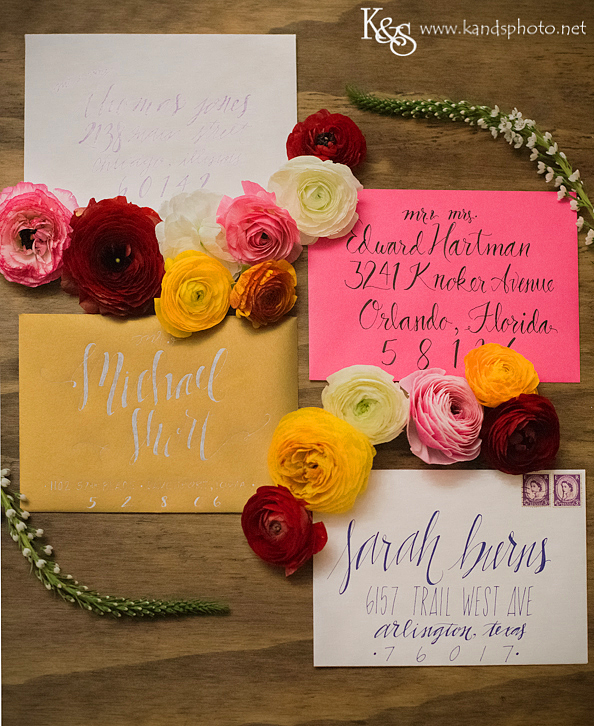 K&S www.kandsphoto.net
Thomas Jones
60142
mr & mrs.
Edward Hartman
3241 Knoker Avenue
Orlando, Florida
Michael
52866
sarah burns
6157 TRAIL WEST AVE
arlington, texas
• 7 6 0 1 7 •